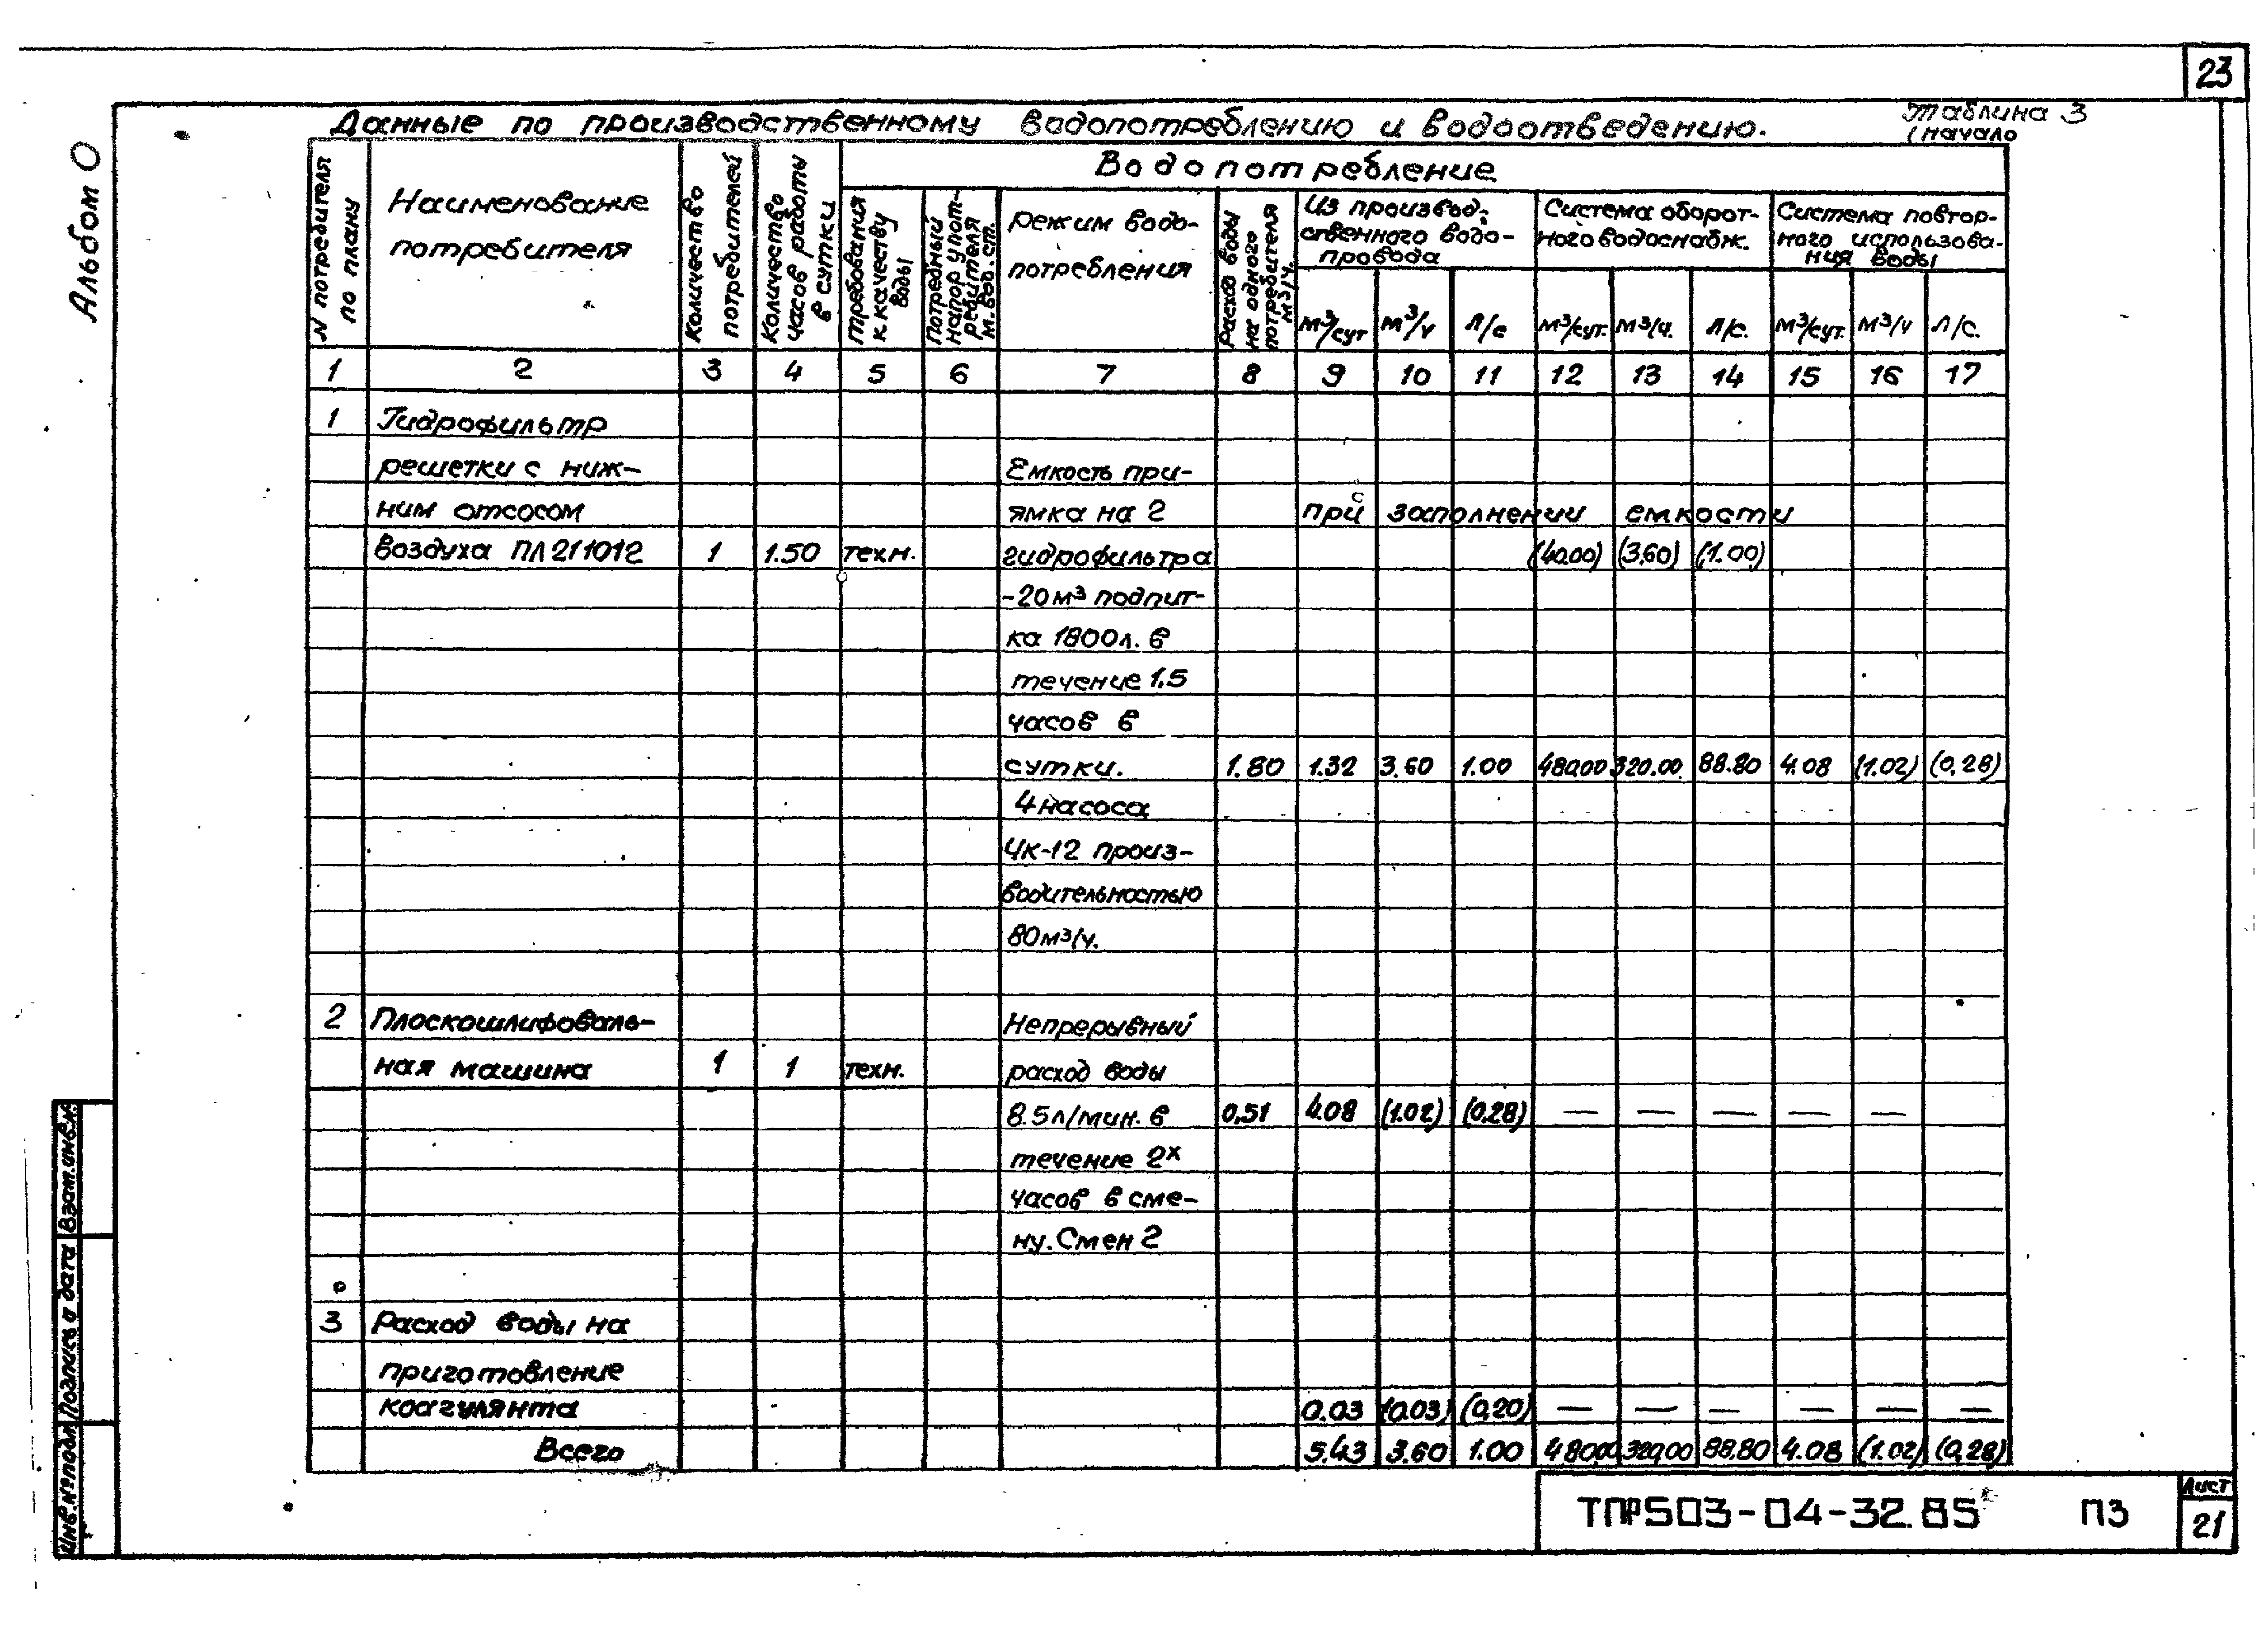 23
Альбом 0
Данные по производственному водопотреблению и водоотведению.
Таблица 3
(начало
N потребителя по плану
Наименование потребителя
Количество потребителей
Количество часов работы в сутки
Водопотребление
требования к качеству воды
Потребный напор у потребителя м. вод. ст.
режим водопотребления
Расход воды на одного потребителя м3/ч.
Из производ-
ственного водо-
провода
Система оборот-
ного водоснабж.
Система повтор-
ного использова-
ния воды
м³/сут м³/ч л/с м³/сут. м³/ч. л/с. м³/сут. м³/ч л/с.
1 2 3 4 5 6 7 8 9 10 11 12 13 14 15 16 17
1 Гидрофильтр
решетки с ниж- Емкость при-
ним отсосом ямка на 2 при заполнении емкости
воздуха ПЛ211012 1 1.50 техн. гидрофильтра (40.00) (3.60) (1.00)
-20м³ подпит-
ка 1800л. в
течение 1.5
часов в
сутки. 1.80 1.32 3.60 1.00 480.00 320.00 88.80 4.08 (1.02) (0,28)
4 насоса
4к-12 произ-
водительностью
80м³/ч.
2 Плоскошлифоваль- Непрерывный
ная машина 1 1 техн. расход воды
8.5л/мин. в 0,51 4.08 (1.02) (0.28) — — — — —
течение 2х
часов в сме-
ну. Смен 2
3 Расход воды на
приготовление
коагулянта 0.03 (0.03) (0,20) — — — — — —
Всего 5.43 3.60 1.00 480.00 320,00 88.80 4.08 (1.02) (0,28)
Взам.инв.н.
Подпись и дата
Инв.№подл.
ТПР503-04-32.85 ПЗ
Лист
21